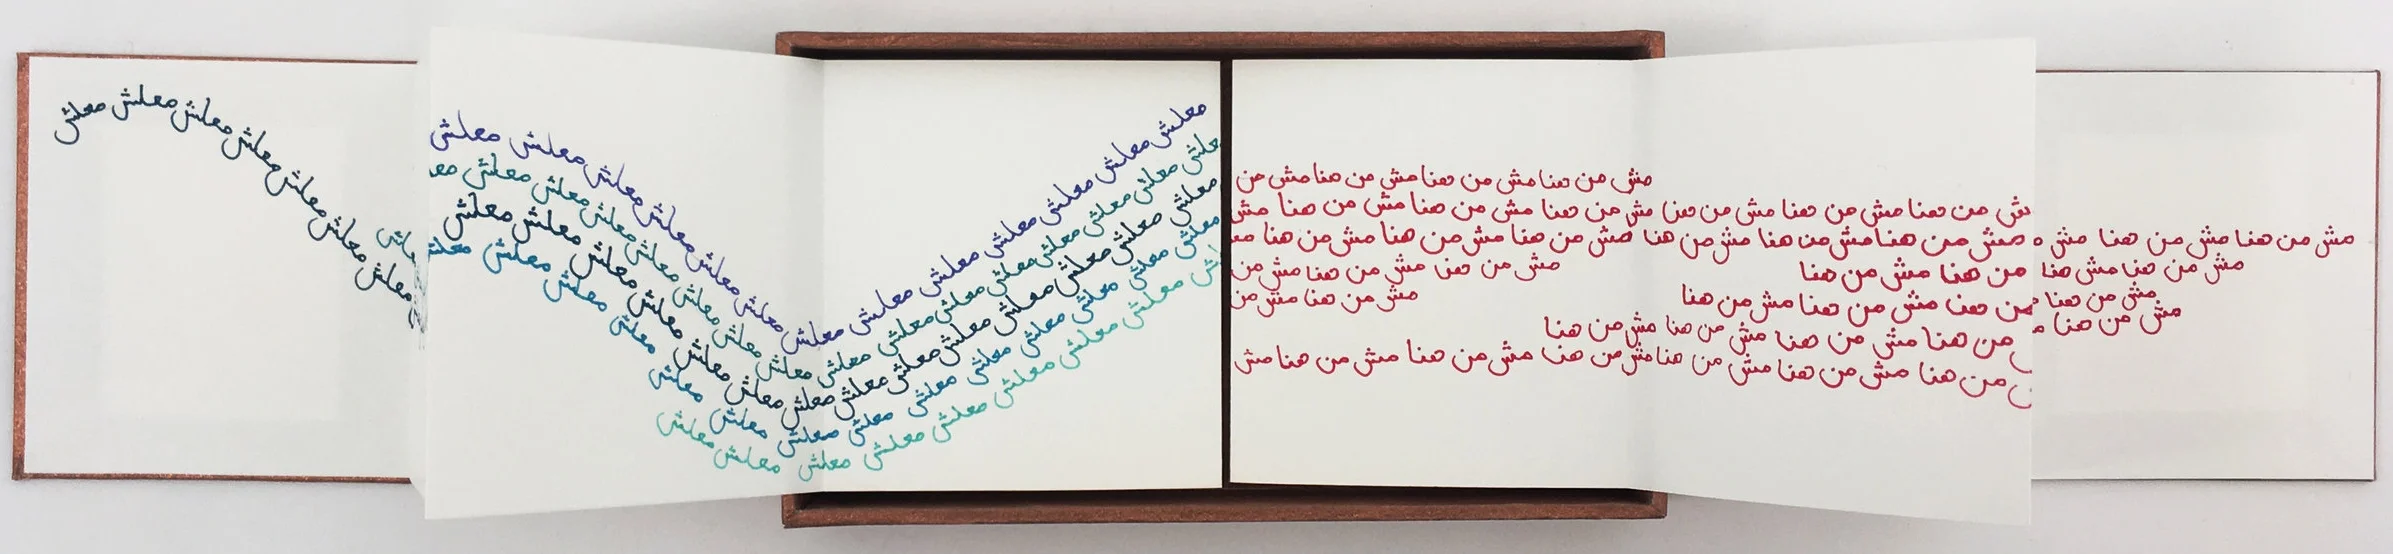 معلش معلش معلش معلش معلش معلش معلش معلش معلش معلش معلش معلش معلش معلش معلش
معلش معلش معلش معلش معلش معلش معلش معلش معلش معلش معلش معلش معلش معلش
معلش معلش معلش معلش معلش معلش معلش معلش معلش معلش معلش معلش معلش معلش
معلش معلش معلش معلش معلش معلش معلش معلش معلش معلش معلش معلش
معلش معلش معلش معلش معلش معلش معلش معلش معلش
معلش معلش معلش معلش معلش معلش معلش معلش
مش من هنا مش من هنا مش من هنا مش من
مش من هنا مش من هنا مش من هنا مش من هنا مش من هنا مش من هنا مش من هنا مش
مش من هنا مش من هنا مش من هنا مش
مش من هنا مش من هنا مش من هنا مش من هنا مش من هنا مش من هنا مش من هنا
مش من هنا مش من هنا
من هنا مش من هنا
مش من هنا مش من هنا مش من
مش من هنا
من هنا مش من هنا مش من هنا
مش من هنا مش من
مش من هنا
من هنا مش من هنا مش من هنا مش من هنا
من هنا مش من هنا مش من هنا مش من هنا مش من هنا مش من هنا مش